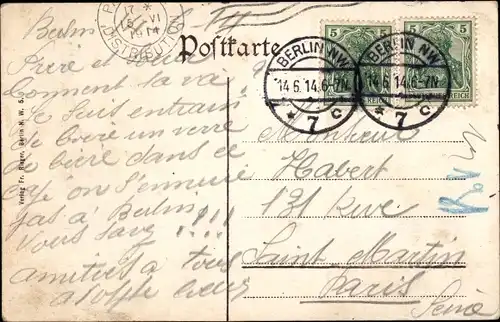 PARIS
17 *
15 VI
1914
DISTRIBUTION
Postkarte
5
5
REICH
REICH
BERLIN NW
14.6.14.6-7N.
* 7 c
BERLIN NW
14.6.14.6-7N.
* 7 c
Berlin
comment ça va!
Je suis entrain
de boire un verre
de bière dans ce
café on s'ennuie
pas à Berlin
Vous savez !!!!
amitiés à tous
adolphe
Verlag Fr. Rieger, Berlin N. W. 5.
Monsieur
Habert
131 Rue
Saint Martin
Paris
Seine